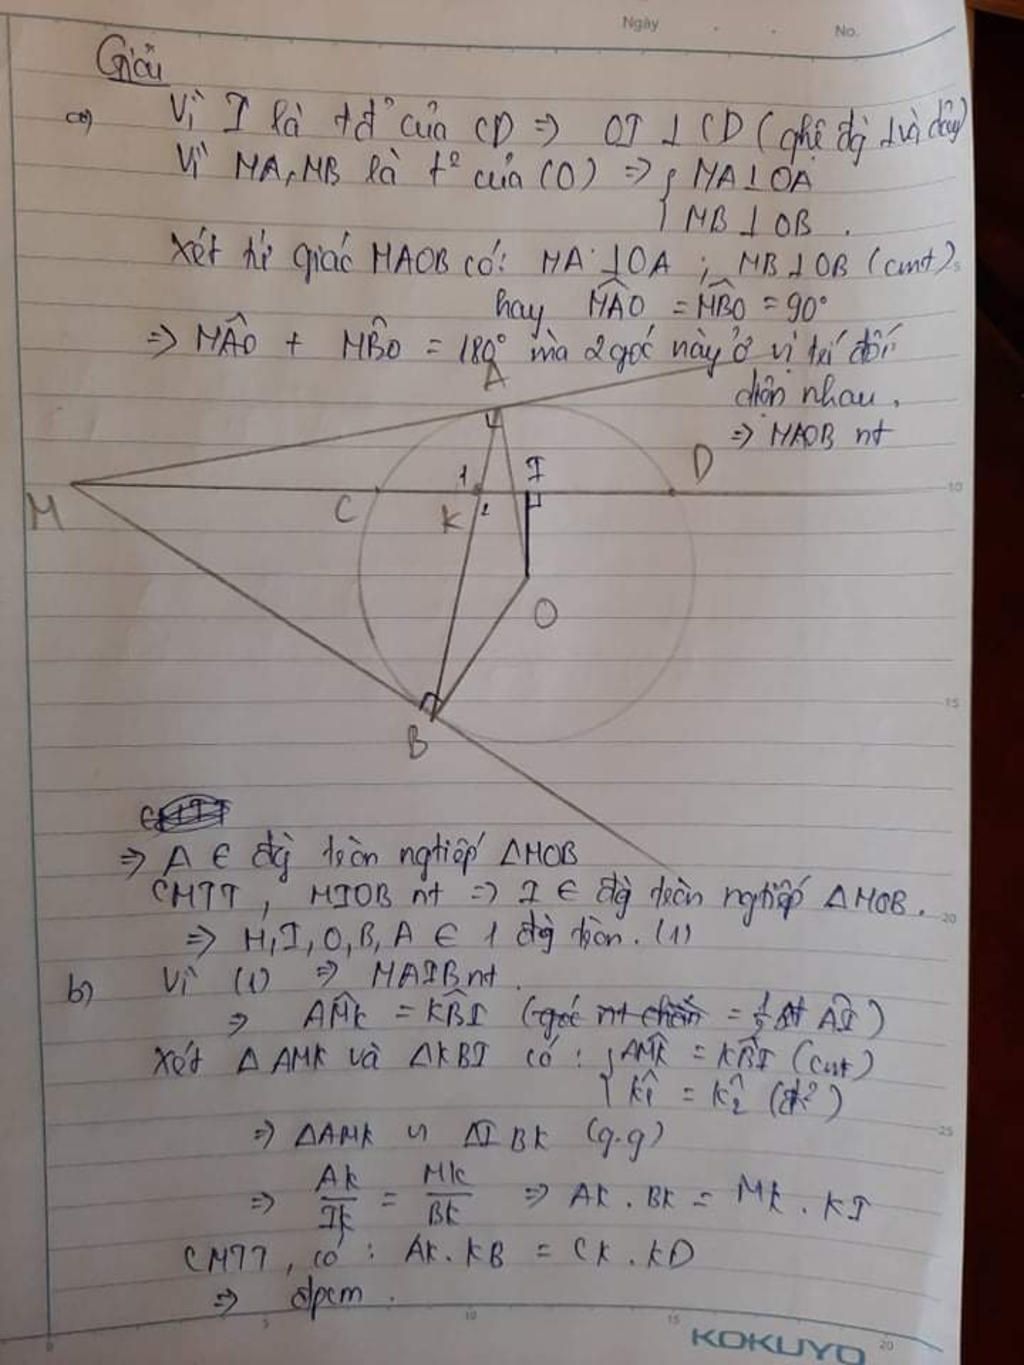 Ngày . . No.
Giải
a) Vì I là tđ² của CD => OI ⊥ CD (qhệ đg ⊥ và dây)
Vì MA, MB là t² của (O) => { MA ⊥ OA
MB ⊥ OB .
Xét tứ giác MAOB có: MA ⊥ OA ; MB ⊥ OB (cmt)
hay MÂO = MB̂O = 90°
=> MÂO + MB̂O = 180° mà 2 góc này ở vị trí đối
diện nhau .
=> MAOB nt
A
M C K 1 2 I D 10
O
15
B
=> A ∈ đg tròn ngtiếp ΔMOB
CMTT, MIOB nt => I ∈ đg tròn ngtiếp ΔMOB . 20
=> M, I, O, B, A ∈ 1 đg tròn . (1)
b) Vì (1) => MAIB nt .
=> AM̂K = KB̂I (góc nt chắn = 1/2 sđ AI)
Xét ΔAMK và ΔKBI có : { AM̂K = KB̂I (cmt)
K̂1 = K̂2 (đ²)
=> ΔAMK ∽ ΔIBK (g.g) 25
=> AK/IK = MK/BK => AK . BK = MK . KI
CMTT, có : AK . KB = CK . KD
=> đpcm .
0 5 10 15 20
KOKUYO